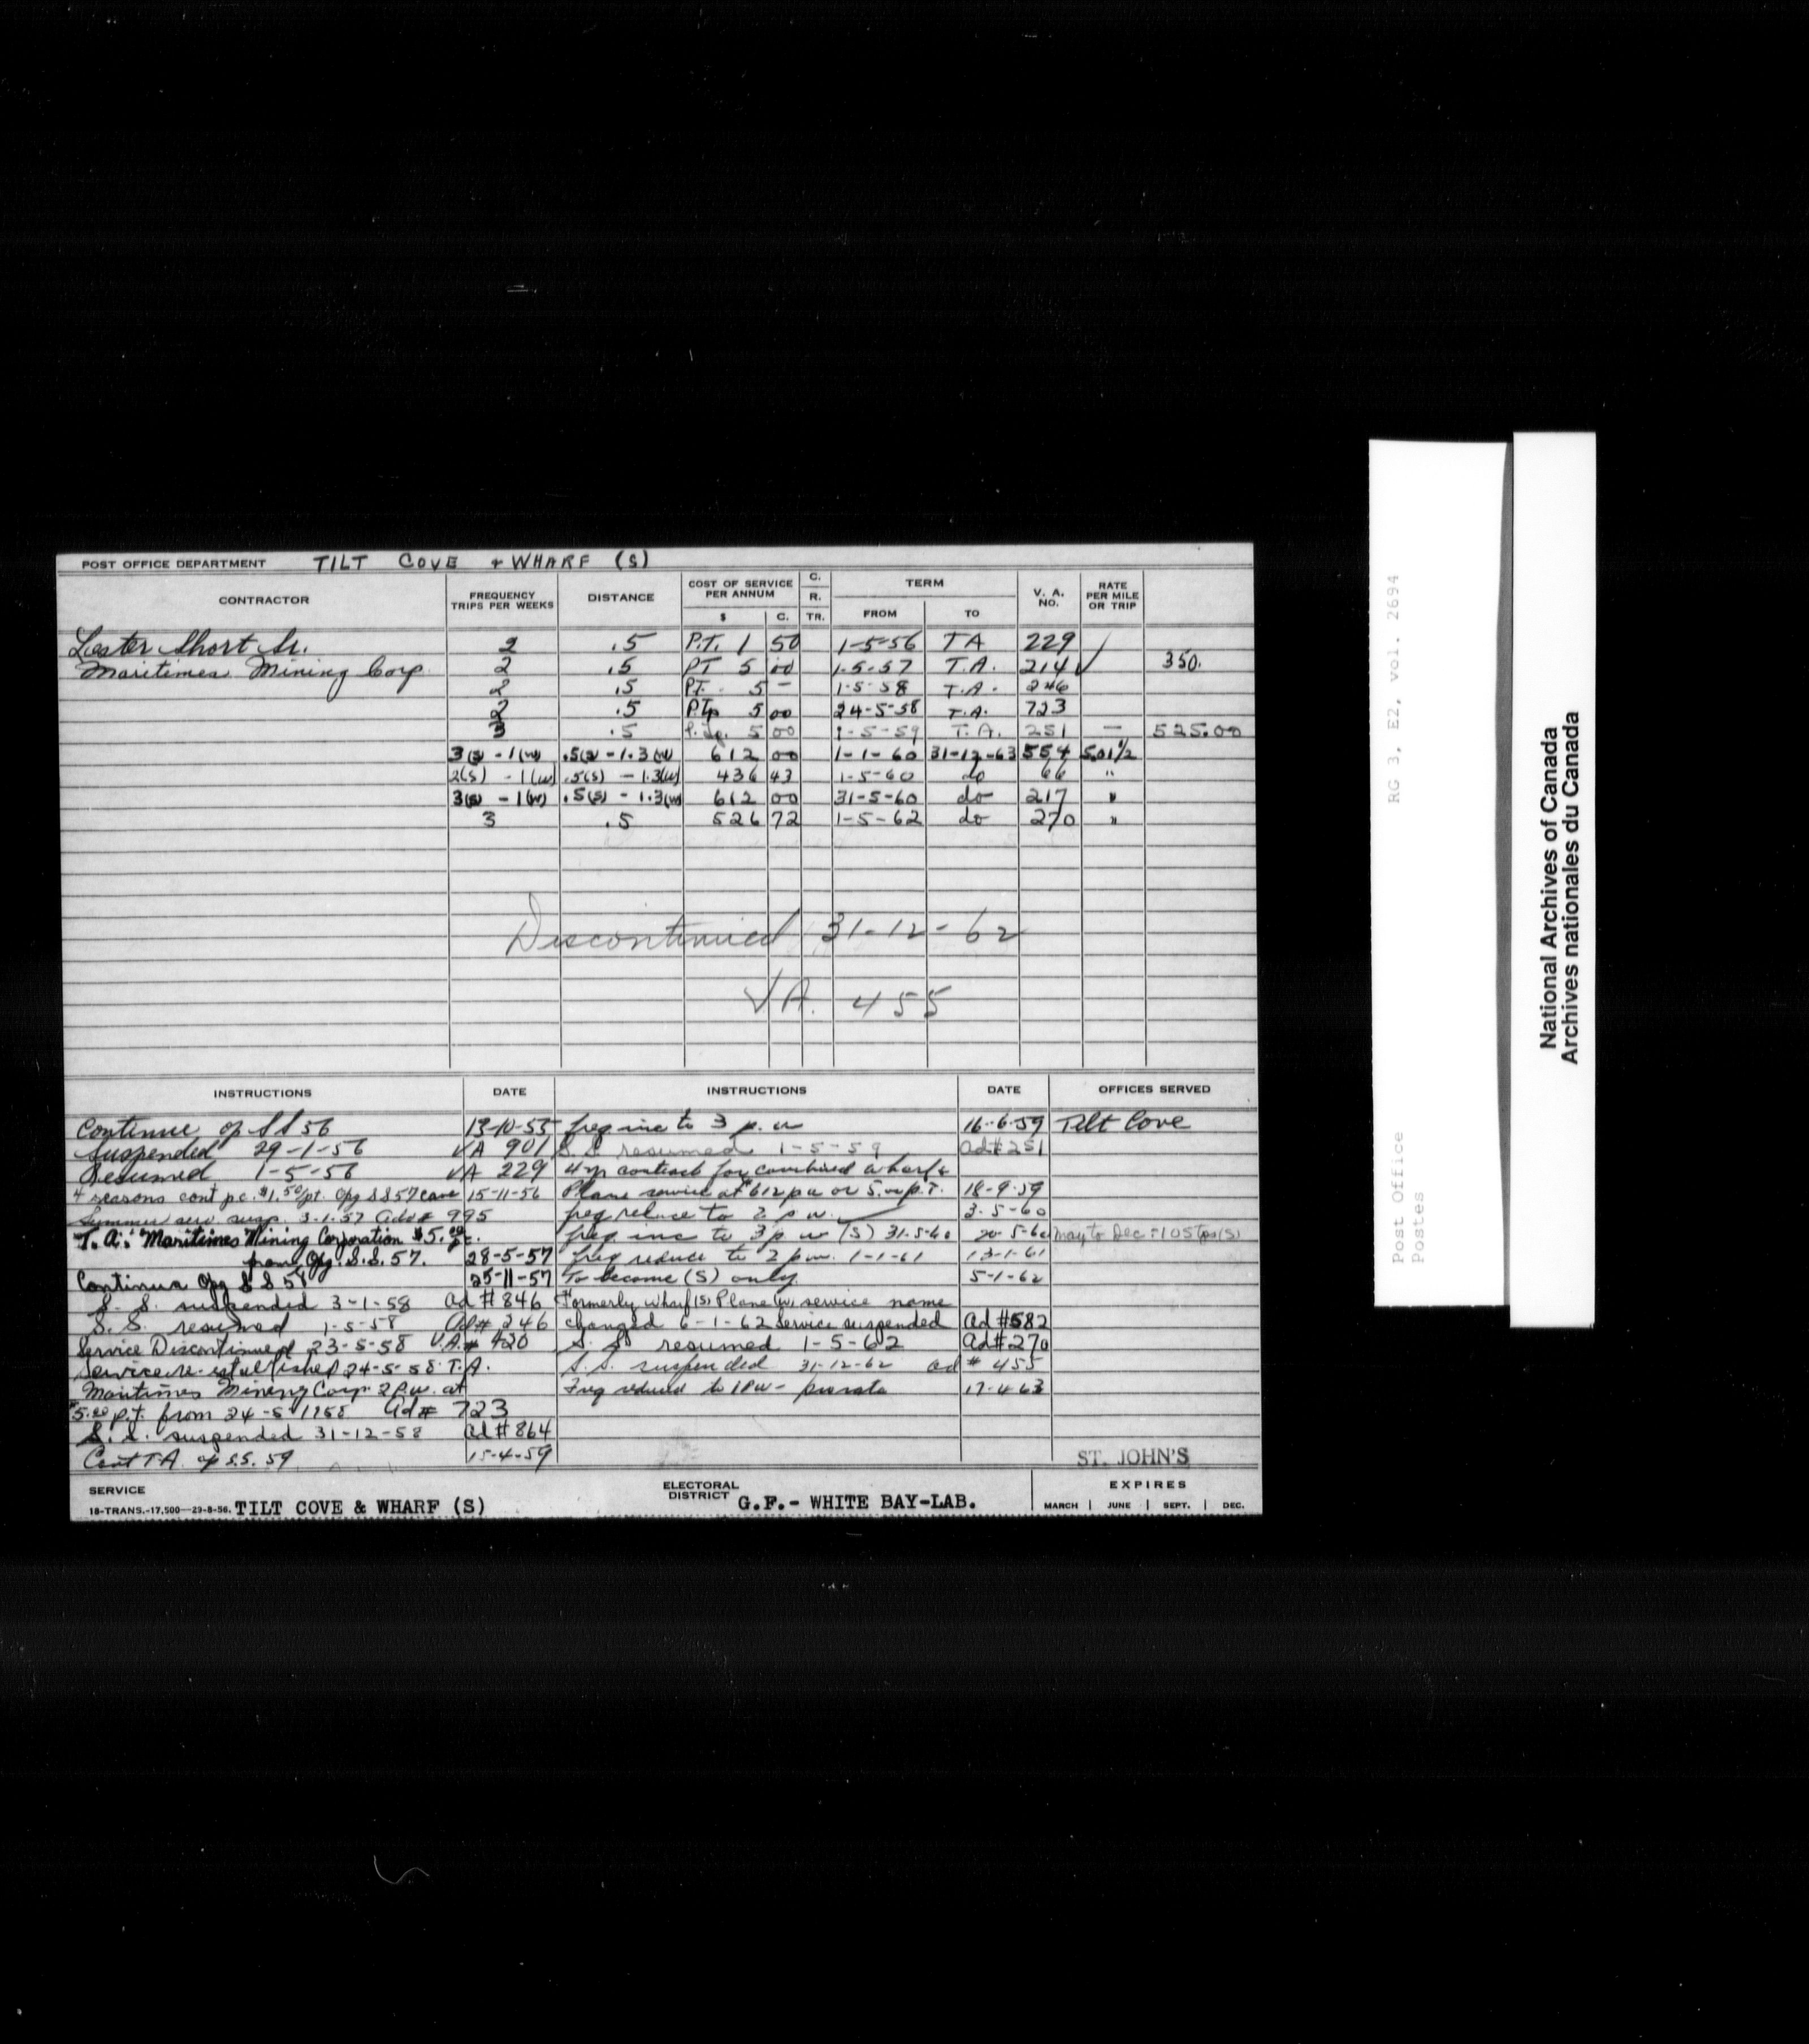 POST OFFICE DEPARTMENT TILT COVE + WHARF (S)
CONTRACTOR FREQUENCY TRIPS PER WEEKS DISTANCE COST OF SERVICE PER ANNUM $ C. C. R. TR. TERM FROM TO V. A. NO. RATE PER MILE OR TRIP
Lester Short Sr. 2 .5 P.T. 1 50 1-5-56 TA 229
Maritimes Mining Corp. 2 .5 PT 5 00 1-5-57 T.A. 214 350.
2 .5 PT. 5 - 1-5-58 T.A. 246
2 .5 PTp 5 00 24-5-58 T.A. 723
3 .5 5 00 1-5-59 T.A. 251 — 525.00
3(s) - 1(w) .5(s) - 1.3(w) 612 00 1-1-60 31-12-63 554 5.01½
2(s) - 1(w) .5(s) - 1.3(w) 436 43 1-5-60 do 66 "
3(s) - 1(w) .5(s) - 1.3(w) 612 00 31-5-60 do 217 "
3 .5 526 72 1-5-62 do 270 "
Discontinued 31-12-62
VA. 455
INSTRUCTIONS DATE INSTRUCTIONS DATE OFFICES SERVED
Continue op SS 56 13-10-55 freq inc to 3 p. w 16-6-59 Tilt Cove
Suspended 29-1-56 VA 901 S.S. resumed 1-5-59 Ad#251
Resumed 1-5-56 VA 229 4 yr contract for combined wharf &
4 seasons cont p.c. $1.50/pt. Opg SS57 15-11-56 Plane service at $612 p a or 5. p.T. 18-9-59
Summer serv. susp. 3-1-57 Ad# 995 freq reduce to 2 p w. 3-5-60
T.A.: Maritimes Mining Corporation $5.00 freq inc to 3 p. w (S) 31-5-60 20-5-60 May to Dec = 105 tps(S)
from Opg. S.S. 57. 28-5-57 freq reduce to 2 p.w. 1-1-61 13-1-61
Continua Opg S S 58 25-11-57 To become (S) only. 5-1-62
S. S. suspended 3-1-58 Ad #846 Formerly Wharf (S) Plane (W) service name
S. S. resumed 1-5-58 Ad# 246 changed 6-1-62 Service suspended Ad #582
Service Discontinued 23-5-58 V.A.# 420 S. S. resumed 1-5-62 Ad#270
Service re-established 24-5-58 T.A. S.S. suspended 31-12-62 Ad # 455
Maritimes Mining Corp. 2 p.w. at Freq reduced to 1 PW - prorata 17-4-63
$5.00 p.t. from 24-5-1958 Ad# 723
S. S. suspended 31-12-58 Ad #864
Cont T.A. op S.S. 59 15-4-59
ST. JOHN'S
SERVICE
18-TRANS.-17,500—29-8-56. TILT COVE & WHARF (S) ELECTORAL DISTRICT G.F.- WHITE BAY-LAB. EXPIRES MARCH | JUNE | SEPT. | DEC.
RG 3, E2, vol. 2694
Post Office
Postes
National Archives of Canada
Archives nationales du Canada